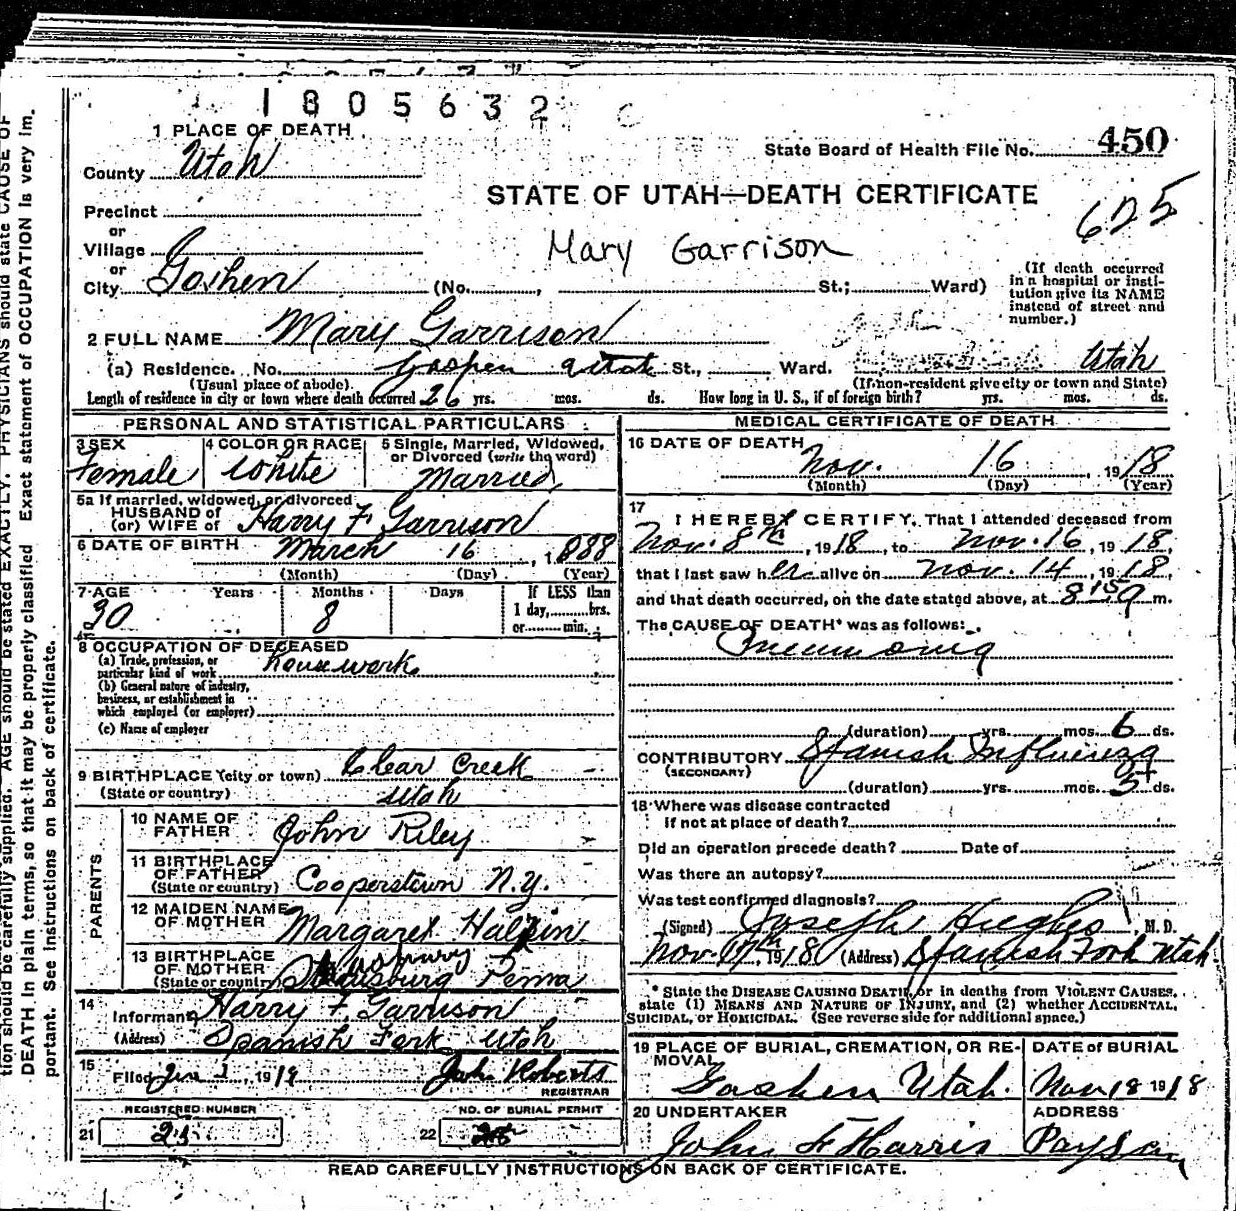 1805632 C
1 PLACE OF DEATH
State Board of Health File No. 450
County Utah
STATE OF UTAH—DEATH CERTIFICATE
625
Precinct
or
Village
Mary Garrison
or
City Goshen (No. , St.; Ward)
(If death occurred in a hospital or institution give its NAME instead of street and number.)
2 FULL NAME Mary Garrison
(a) Residence. No. Goshen Utah St., Ward. Utah
(Usual place of abode) (If non-resident give city or town and State)
Length of residence in city or town where death occurred 26 yrs. mos. ds. How long in U. S., if of foreign birth? yrs. mos. ds.
PERSONAL AND STATISTICAL PARTICULARS
3 SEX
Female
4 COLOR OR RACE
White
5 Single, Married, Widowed,
or Divorced (write the word)
Married
5a If married, widowed, or divorced
HUSBAND of
(or) WIFE of Harry F Garrison
6 DATE OF BIRTH March 16, 1888
(Month) (Day) (Year)
7 AGE Years Months Days
30 8
If LESS than
1 day, hrs.
or min.
8 OCCUPATION OF DECEASED
(a) Trade, profession, or
particular kind of work housework
(b) General nature of industry,
business, or establishment in
which employed (or employer)
(c) Name of employer
9 BIRTHPLACE (city or town) Clear Creek
(State or country) Utah
PARENTS
10 NAME OF
FATHER John Riley
11 BIRTHPLACE
OF FATHER
(State or country) Cooperstown N.Y.
12 MAIDEN NAME
OF MOTHER Margaret Halpin
13 BIRTHPLACE
OF MOTHER
(State or country) Penna
14
Informant Harry F. Garrison
(Address) Spanish Fork Utah
15
Filed Jan 1, 1919 John Roberts
REGISTRAR
REGISTERED NUMBER
21
NO. OF BURIAL PERMIT
22
MEDICAL CERTIFICATE OF DEATH
16 DATE OF DEATH
Nov. 16, 1918
(Month) (Day) (Year)
17
I HEREBY CERTIFY, That I attended deceased from
Nov. 8th, 1918, to Nov. 16, 1918,
that I last saw her alive on Nov. 14, 1918,
and that death occurred, on the date stated above, at 8:15 a m.
The CAUSE OF DEATH* was as follows:
Pneumonia
(duration) yrs. mos. 6 ds.
CONTRIBUTORY Spanish Influenza
(SECONDARY)
(duration) yrs. mos. 5+ ds.
18 Where was disease contracted
If not at place of death?
Did an operation precede death? Date of
Was there an autopsy?
Was test confirmed diagnosis?
(Signed) Joseph Hughes, M. D.
Nov. 17th, 1918 (Address) Spanish Fork Utah.
* State the DISEASE CAUSING DEATH, or in deaths from VIOLENT CAUSES,
state (1) MEANS AND NATURE OF INJURY, and (2) whether ACCIDENTAL,
SUICIDAL, or HOMICIDAL. (See reverse side for additional space.)
19 PLACE OF BURIAL, CREMATION, OR RE-
MOVAL
Goshen Utah.
DATE of BURIAL
Nov 18 1918
20 UNDERTAKER
John F Harris
ADDRESS
Payson
READ CAREFULLY INSTRUCTIONS ON BACK OF CERTIFICATE.
tion should be carefully supplied. AGE should be stated EXACTLY. PHYSICIANS should state CAUSE OF
DEATH in plain terms, so that it may be properly classified. Exact statement of OCCUPATION is very im-
portant. See instructions on back of certificate.